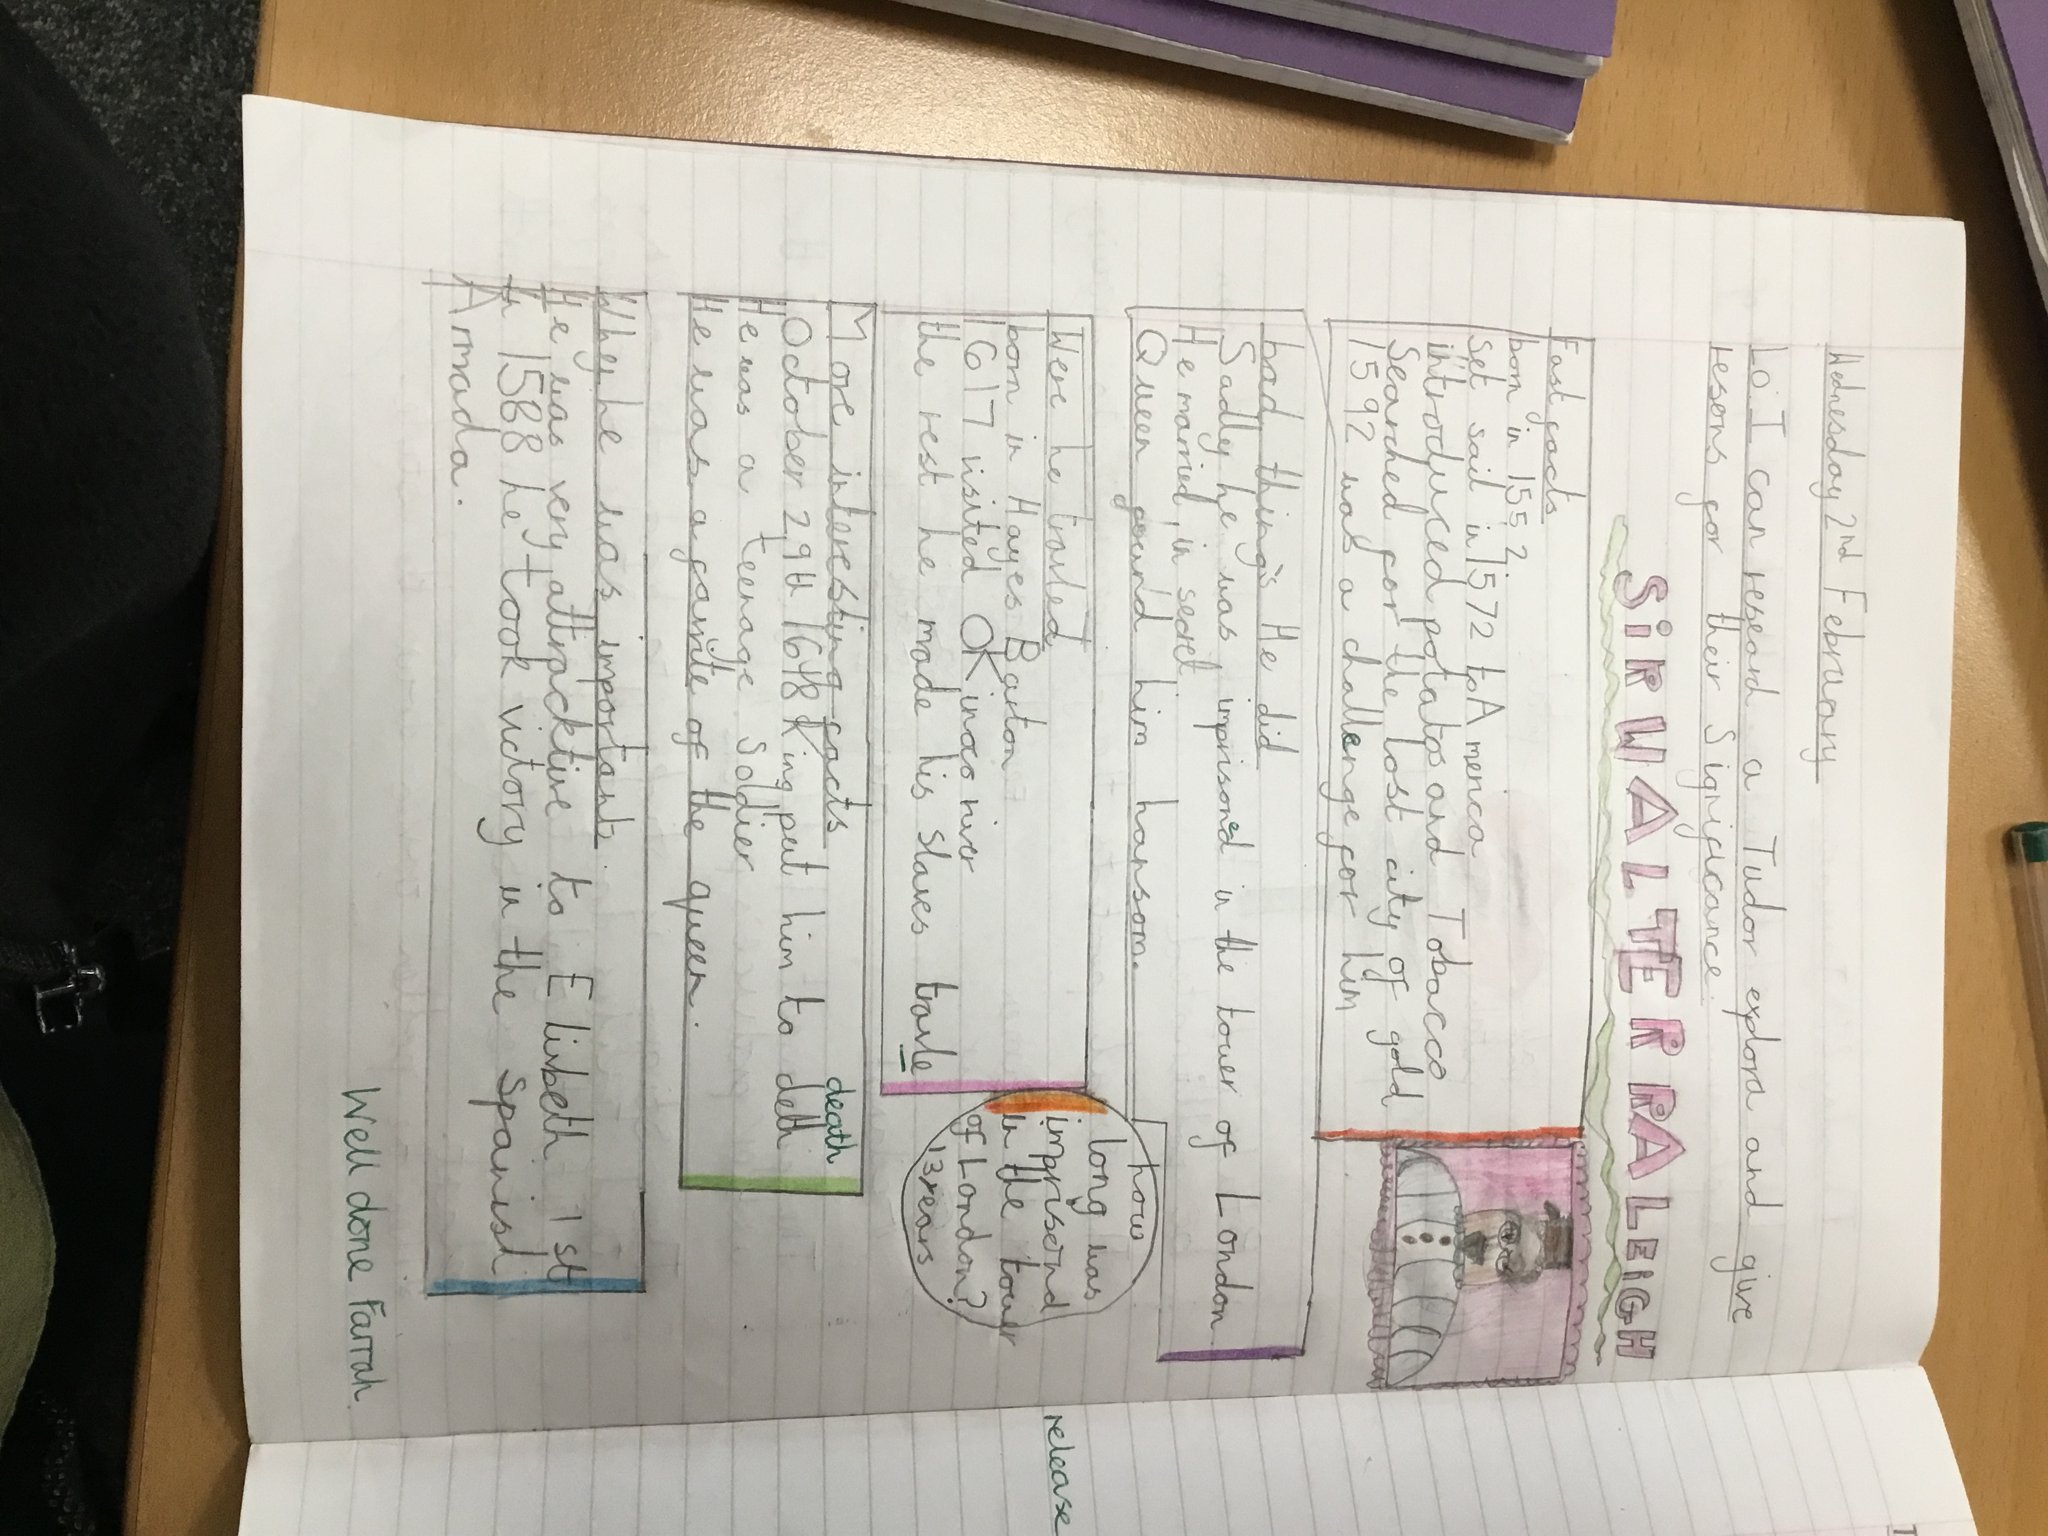 Wednesday 2nd February
Lo. I can research a Tudor explora and give
resons for their Significance.
SiR WALTER RALEiGH
Fast facts
born in 1552.
set sail in 1572 to America
introduced potatos and Tobacco
Searched for the lost city of gold
1592 was a challenge for him
bad things He did
Sadly he was imprisoned in the tower of London
He married in secret.
Queen found him hansom.
how
long was
imprisond
in the tower
of London?
13 years
Were he travled
born in Hayes Barton
1617 visited OKinoco river
the rest he made his Slaves travle
release
More interesting facts
death
October 29th 1648 King put him to deth
He was a teenage Soldier
He was a favrite of the queen.
Why he was important
He was very attracktive to Elisbeth 1st
In 1588 he took victory in the Spanish
Armada.
Well done Farrah.